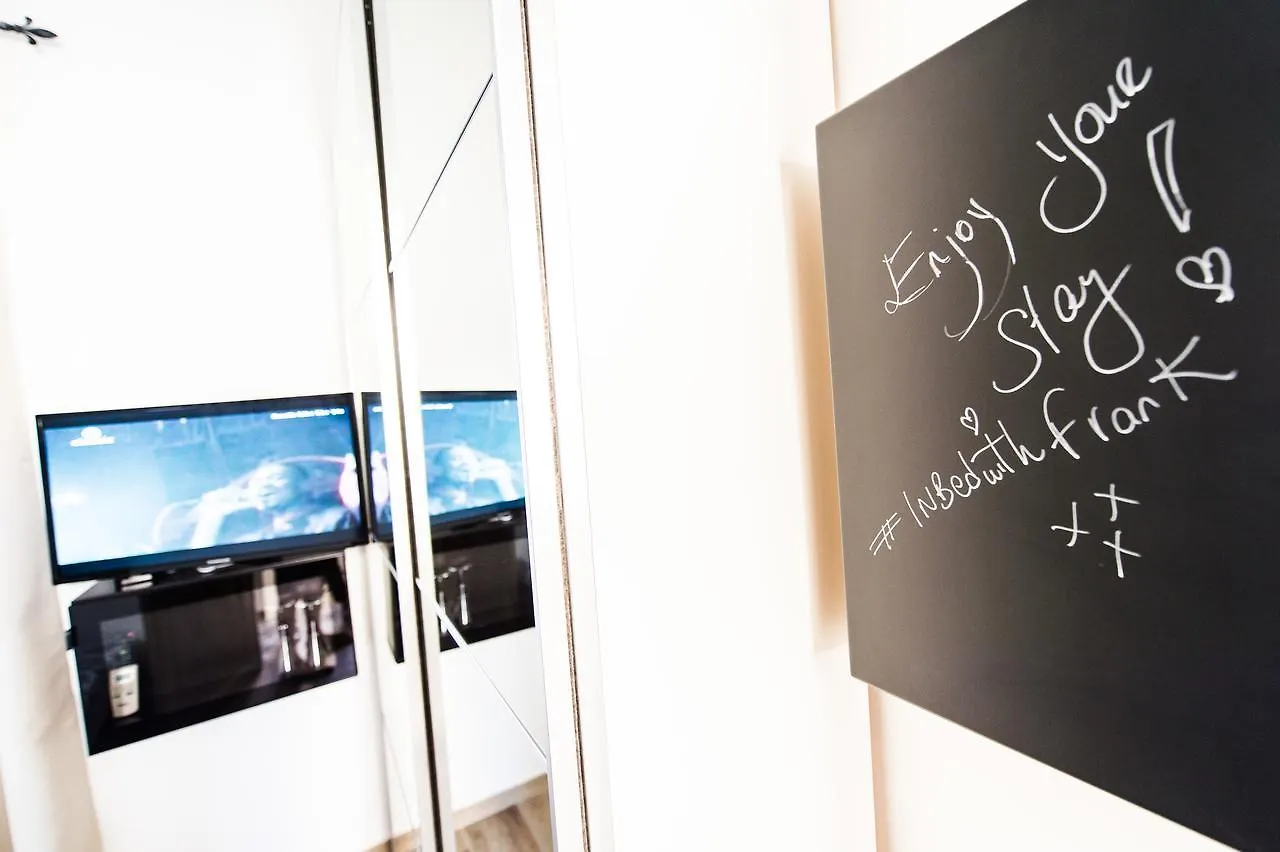 Enjoy Your
Stay !
#INBedwithfranK
x x
x